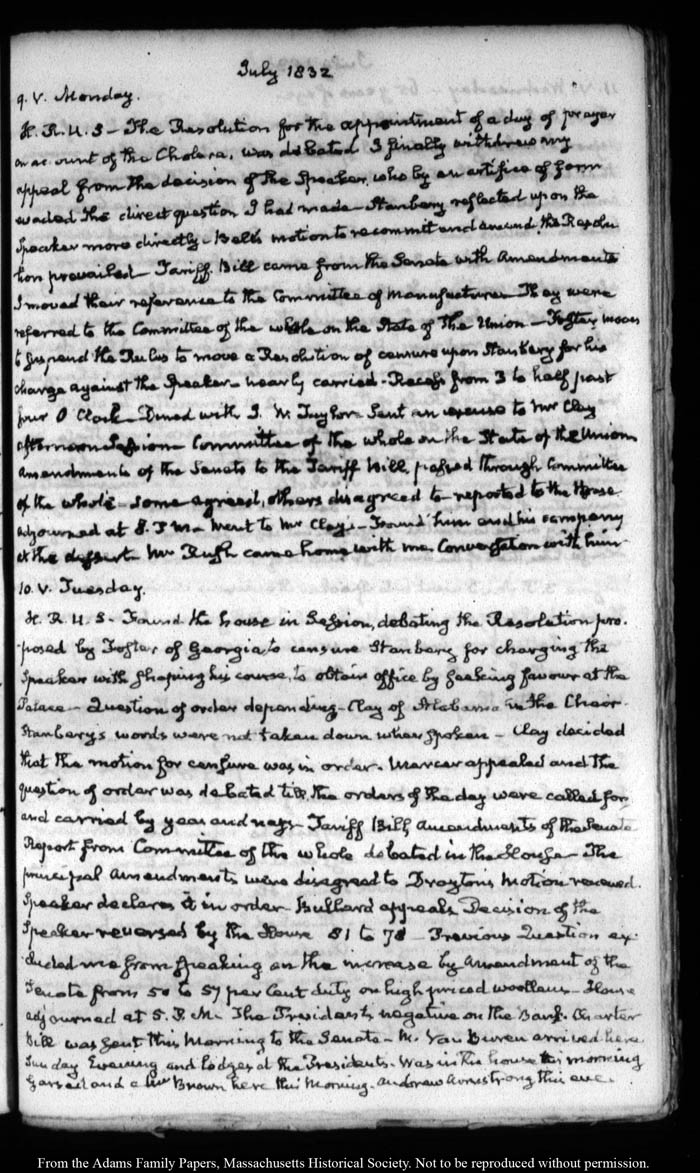 July 1832
9. V. Monday.
H. R. U. S – The Resolution for the appointment of a day of prayer
on account of the Cholera, was debated I finally withdrew my
appeal from the decision of the Speaker, who by an artifice of form
evaded the direct question I had made – Stanbery reflected upon the
Speaker more directly – Bell's motion to recommit and amend the Resolu
tion prevailed – Tariff Bill came from the Senate with Amendments
I moved their reference to the Committee of Manufactures They were
referred to the Committee of the whole on the State of the Union – Foster moves
to suspend the Rules to move a Resolution of censure upon Stanbery for his
charge against the Speaker – nearly carried – Recess from 3 to half past
four O Clock – Dined with J. W. Taylor – Sent an excuse to Mr Clay
afternoon Session – Committee of the whole on the State of the Union
Amendments of the Senate to the Tariff Bill, passed through Committee
of the whole – some agreed, others disagreed to – reported to the House
adjourned at 8. P M – Went to Mr Clay's – Found him and his company
at the dessert – Mr Rush came home with me. Conversation with him –
10. V. Tuesday.
H. R. U. S – Found the house in Session, debating the Resolution pro-
posed by Foster of Georgia to censure Stanbery for charging the
Speaker with shaping his course, to obtain office by seeking favour at the
Palace – Question of order depending – Clay of Alabama in the Chair.
Stanbery's words were not taken down when spoken – Clay decided
that the motion for censure was in order. Mercer appealed and the
question of order was debated till the orders of the day were called for
and carried by yeas and nays – Tariff Bill, Amendments of the Senate
Report from Committee of the whole debated in the House – The
principal Amendments were disagreed to Drayton's Motion renewed.
Speaker declares it in order – Bullard appeals Decision of the
Speaker reversed by the House 81 to 78 – Previous Question ex-
cluded me from speaking on the increase by Amendment of the
Senate from 50 to 57 per Cent duty on high priced woollens – House
adjourned at 5. P. M – The President's negative on the Bank Charter
Bill was sent this Morning to the Senate – M. Van Buren arrived here
Sunday Evening and lodges at the Presidents. Was in the house this morning
and a Mr Brown here this Morning. Andrew Armstrong this eve.
From the Adams Family Papers, Massachusetts Historical Society. Not to be reproduced without permission.